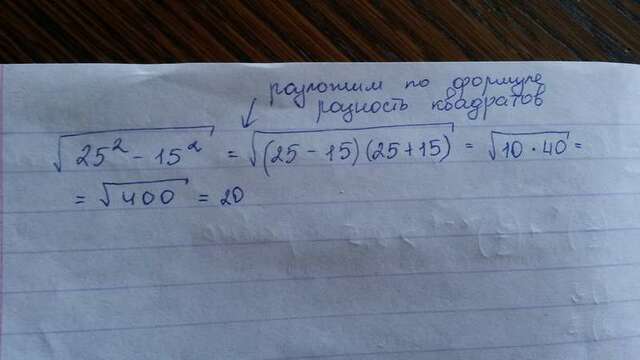 разложим по формуле
разность квадратов
√25² - 15² = √(25 - 15)(25 + 15) = √10 · 40 =
= √400 = 20